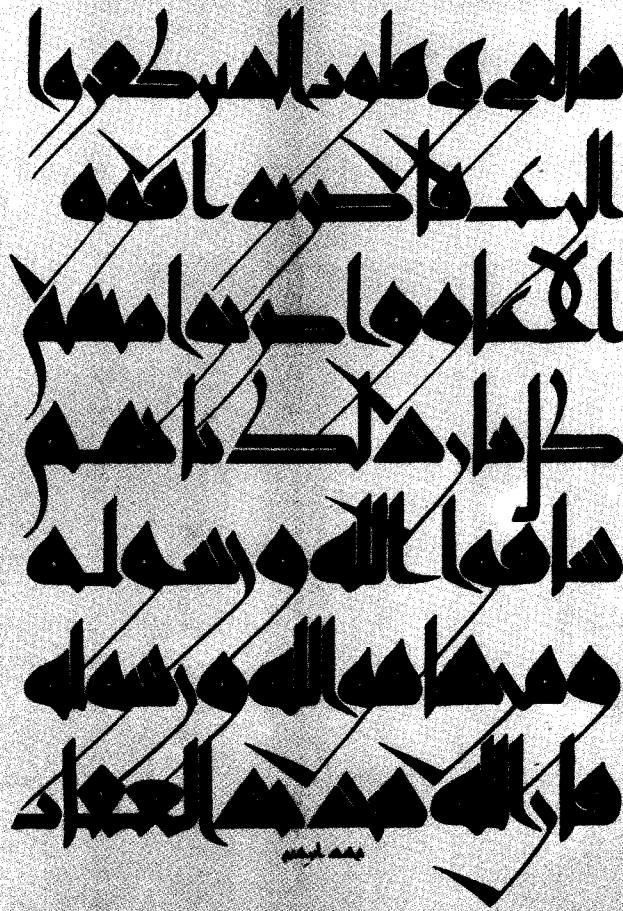 سالقي في قلوب الذين كفروا
الرعب فاضربوا فوق
الاعناق واضربوا منهم
كل بنان ذلك بانهم
شاقوا الله ورسوله
ومن يشاقق الله ورسوله
فان الله شديد العقاب